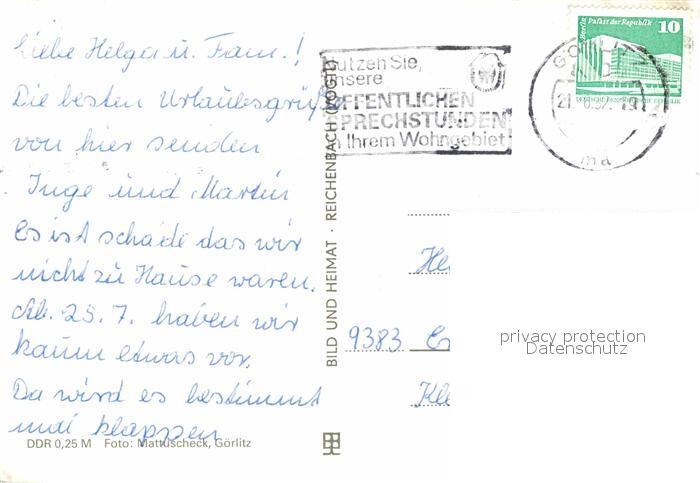 Liebe Helga u. Fam.!
Die besten Urlaubsgrüße
von hier senden
Inge und Martin
Es ist schade das wir
nicht zu Hause waren.
Ab. 25.7. haben wir
kaum etwas vor.
Da wird es bestimmt
mal klappen
DDR 0,25 M Foto: Mattuscheck, Görlitz
BILD UND HEIMAT · REICHENBACH (VOGTL)
Nutzen Sie,
unsere
ÖFFENTLICHEN
SPRECHSTUNDEN
in Ihrem Wohngebiet
GÖRLITZ
ma
Berlin Palast der Republik 10
DEUTSCHE DEMOKRATISCHE REPUBLIK
He
9383
Kle
privacy protection
Datenschutz